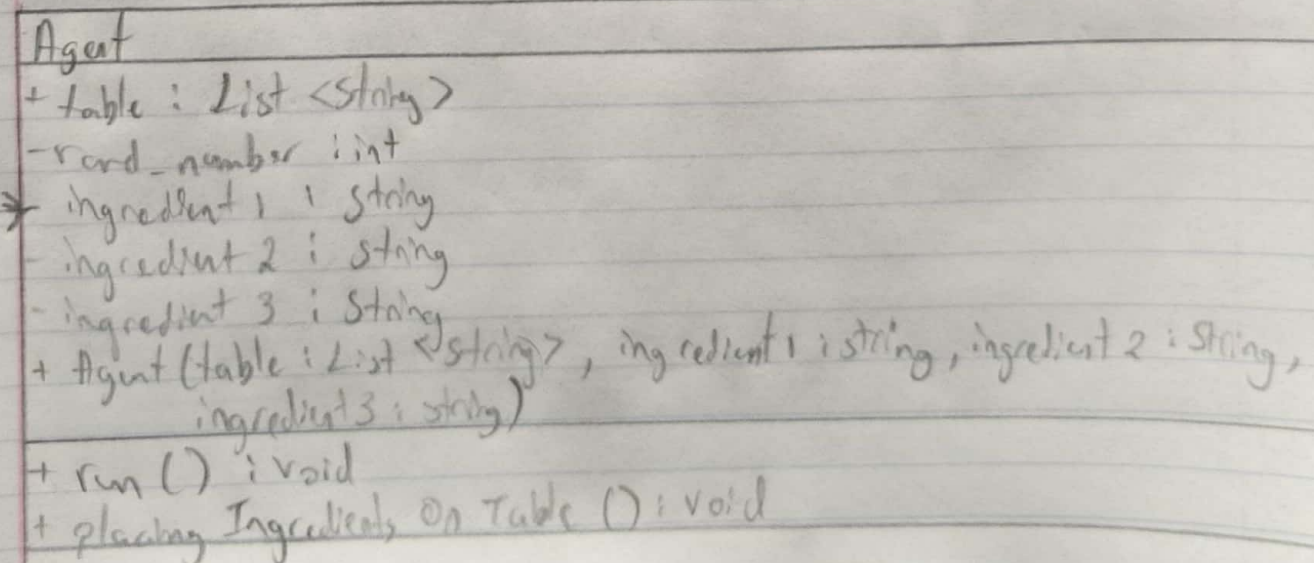 Agent
+ table : List <string>
- rand_number : int
- ingredient 1 : string
- ingredient 2 : string
- ingredient 3 : String
+ Agent (table : List <string>, ingredient 1 : string, ingredient 2 : String,
ingredient 3 : string)
+ run () : void
+ placing Ingredients On Table () : void